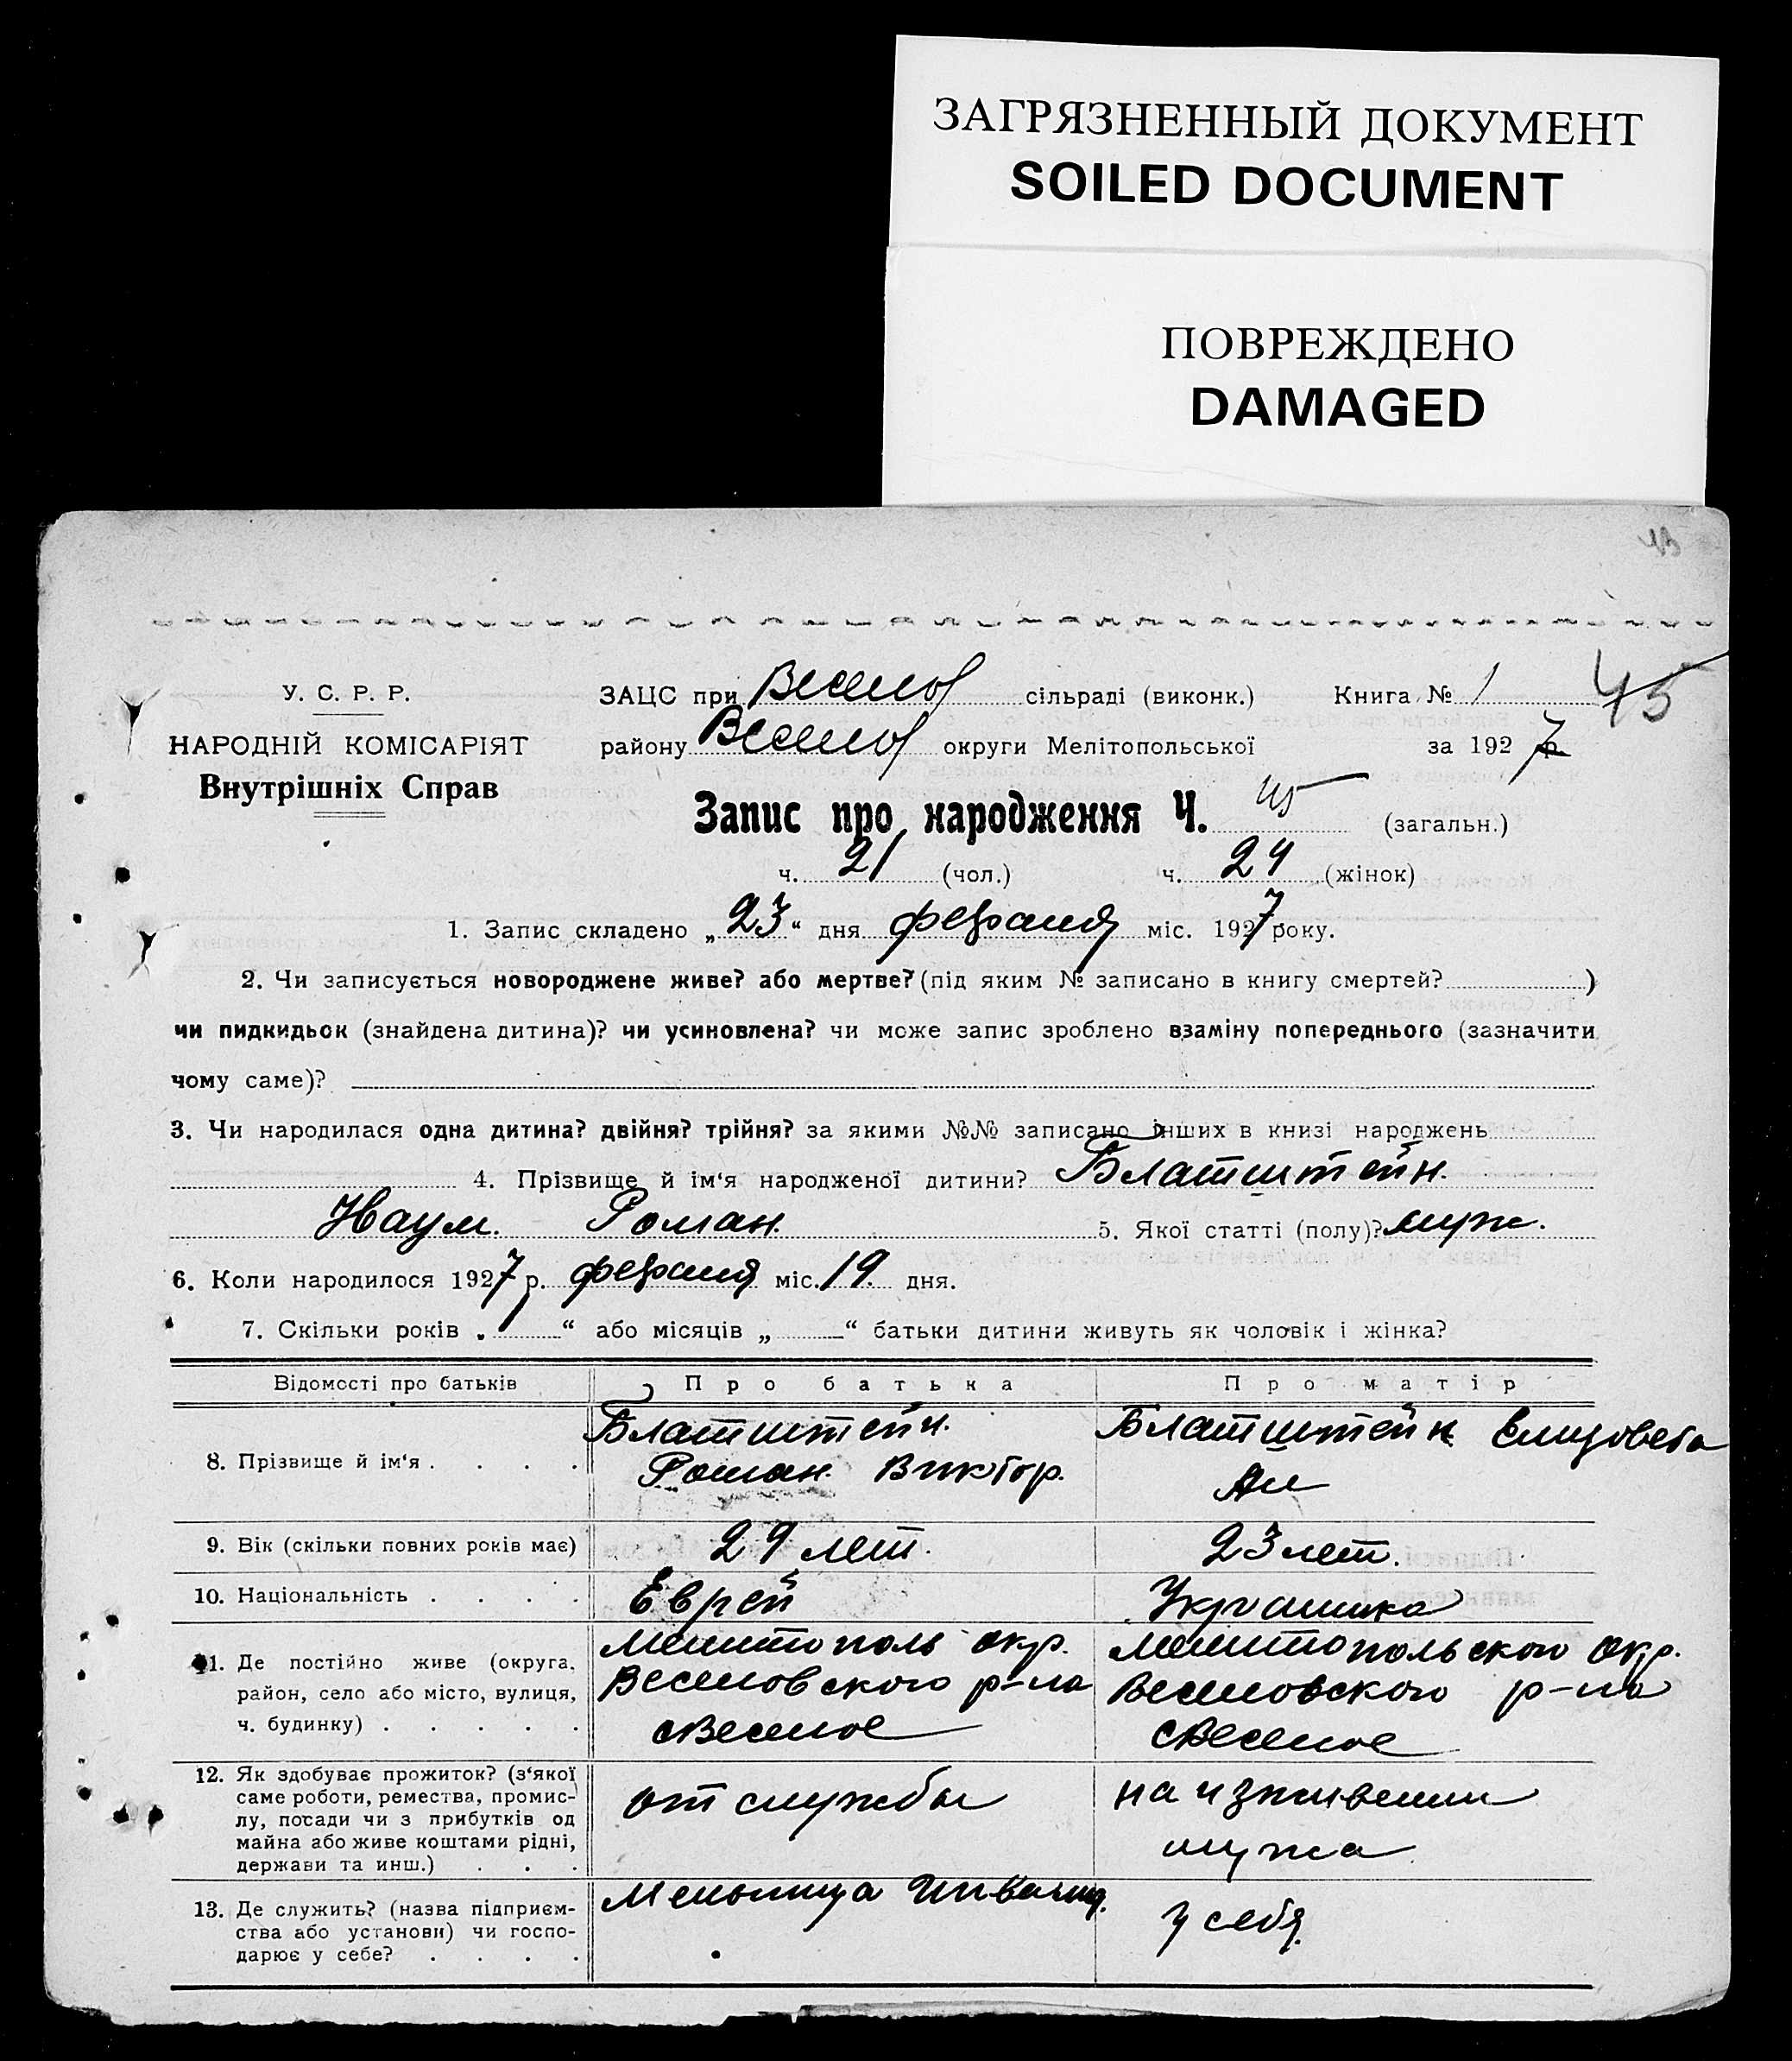 ЗАГРЯЗНЕННЫЙ ДОКУМЕНТ
SOILED DOCUMENT
ПОВРЕЖДЕНО
DAMAGED
У. С. Р. Р.
НАРОДНІЙ КОМІСАРІЯТ
Внутрішніх Справ
ЗАЦС при Весело сільраді (виконк.) Книга № 1 45
району Весело округи Мелітопольської за 1927 р.
Запис про народження Ч. 45 (загальн.)
ч. 21 (чол.) ч. 24 (жінок)
1. Запис складено „23“ дня февраля міс. 1927 року.
2. Чи записується новороджене живе? або мертве? (під яким № записано в книгу смертей? )
чи пидкидьок (знайдена дитина)? чи усиновлена? чи може запис зроблено взаміну попереднього (зазначити
чому саме)?
3. Чи народилася одна дитина? двійня? трійня? за якими №№ записано інших в книзі народжень
4. Прізвище й ім‘я народженої дитини? Блатштейн.
Наум. Роман. 5. Якої статті (полу)? муж.
6. Коли народилося 1927 р. февраля міс. 19. дня.
7. Скільки років „ “ або місяців „ “ батьки дитини живуть як чоловік і жінка?
Відомості про батьків Про батька Про матір
8. Прізвище й ім‘я . . . . Блатштейн. Роман. Виктор. Блатштейн Елизовета
9. Вік (скільки повних років має) 29 лет. 23 лет.
10. Національність . . . . Еврей Украинка
11. Де постійно живе (округа, Мелитополь окр. Мелитопольского окр.
район, село або місто, вулиця, Веселовского р-на Веселовского р-на
ч. будинку) . . . . . с Веселое с Веселое
12. Як здобуває прожиток? (з‘якої
саме роботи, ремества, промис-
лу, посади чи з прибутків од
майна або живе коштами рідні,
держави та инш.) . . .
от службы на иживении
мужа
13. Де служить? (назва підприєм-
ства або установи) чи госпо-
дарює у себе? . . . .
у себя.